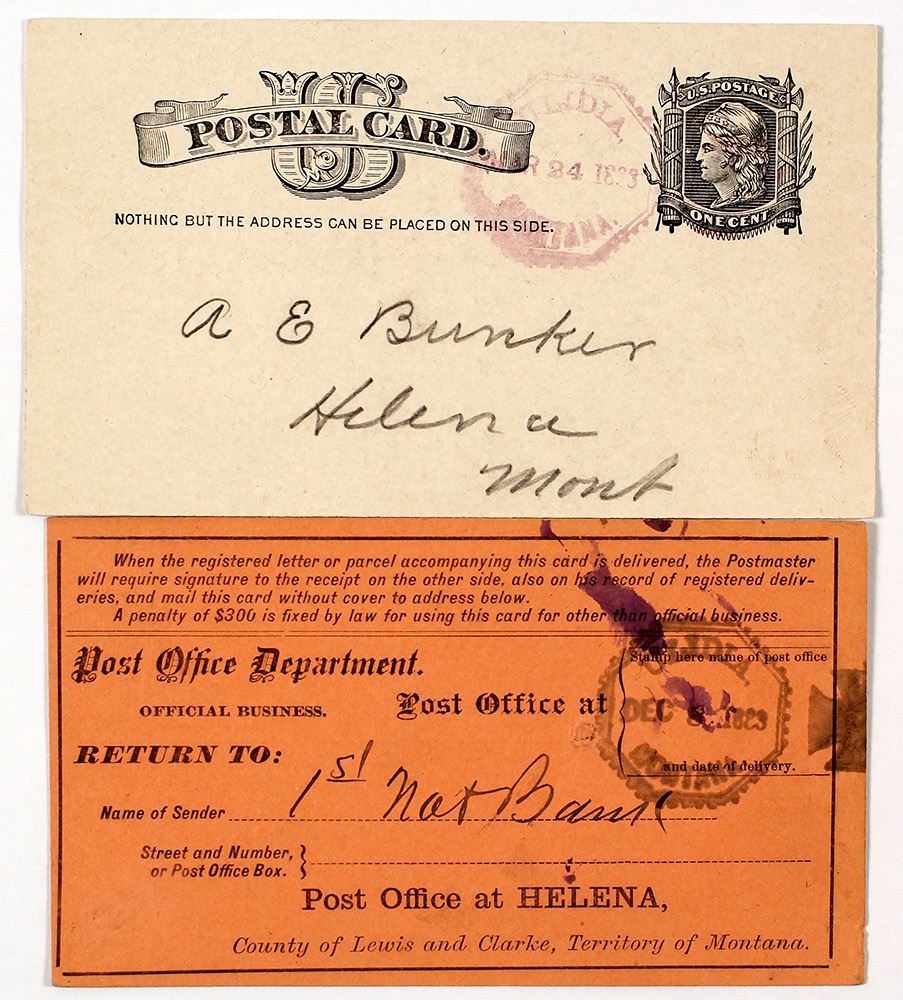 US
POSTAL CARD.
NOTHING BUT THE ADDRESS CAN BE PLACED ON THIS SIDE.
LIDIA,
MAR 24 1883
MONTANA.
U.S. POSTAGE
ONE CENT
A E Bunker
Helena
Mont
When the registered letter or parcel accompanying this card is delivered, the Postmaster
will require signature to the receipt on the other side, also on his record of registered deliv-
eries, and mail this card without cover to address below.
A penalty of $300 is fixed by law for using this card for other than official business.
Post Office Department.
OFFICIAL BUSINESS.
Post Office at
Stamp here name of post office
LIDIA,
DEC 1883
MONTANA
and date of delivery.
RETURN TO:
Name of Sender 1st Nat Bank
Street and Number,
or Post Office Box.
Post Office at HELENA,
County of Lewis and Clarke, Territory of Montana.